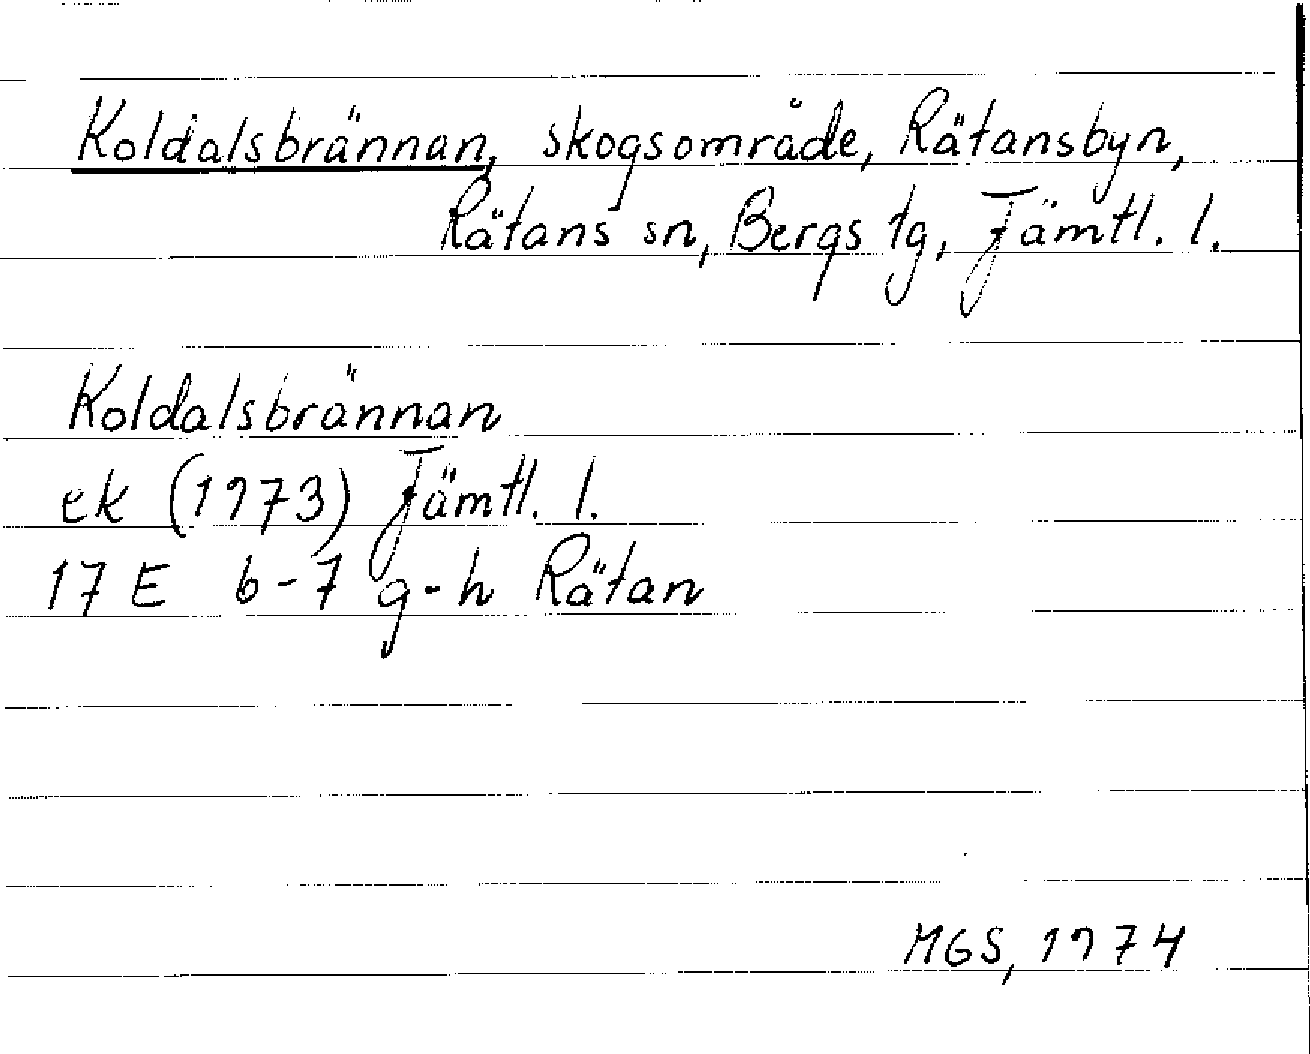 Koldalsbrännan, skogsområde, Rätansbyn,
Rätans sn, Bergs tg, Jämtl. l.
Koldalsbrännan
ek (1973) Jämtl. l.
17 E 6-7 g-h Rätan
MGS, 1974